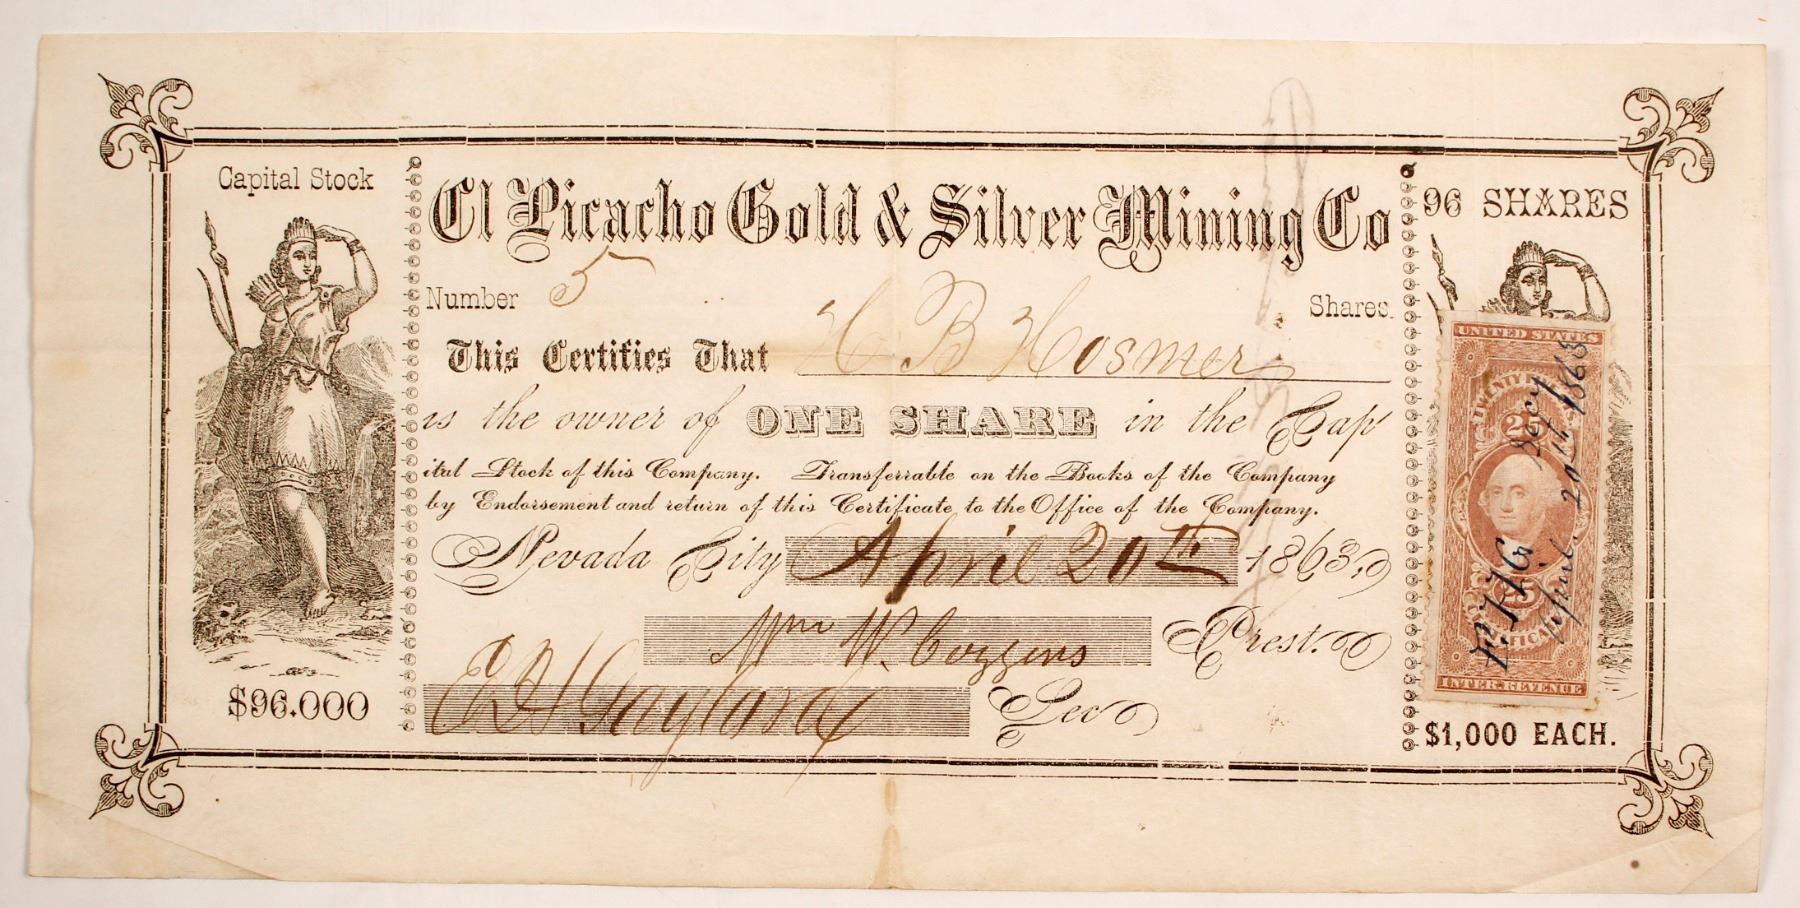 Capital Stock
$96.000
El Picacho Gold & Silver Mining Co
Number 5 Shares.
This Certifies That H B Hosmer
is the owner of ONE SHARE in the Cap
ital Stock of this Company. Transferrable on the Books of the Company
by Endorsement and return of this Certificate to the Office of the Company.
Nevada City April 20th 1863,
Wm W. Cozzens Prest.
Sec
96 SHARES
UNITED STATES
25
Secy
April. 20th 1863
25
INTER. REVENUE
$1,000 EACH.